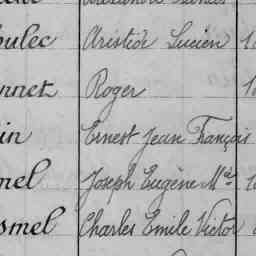 oulec Aristide Lucien
nnet Roger
in Ernest Jean François
nel Joseph Eugène Mie
smel Charles Emile Victor